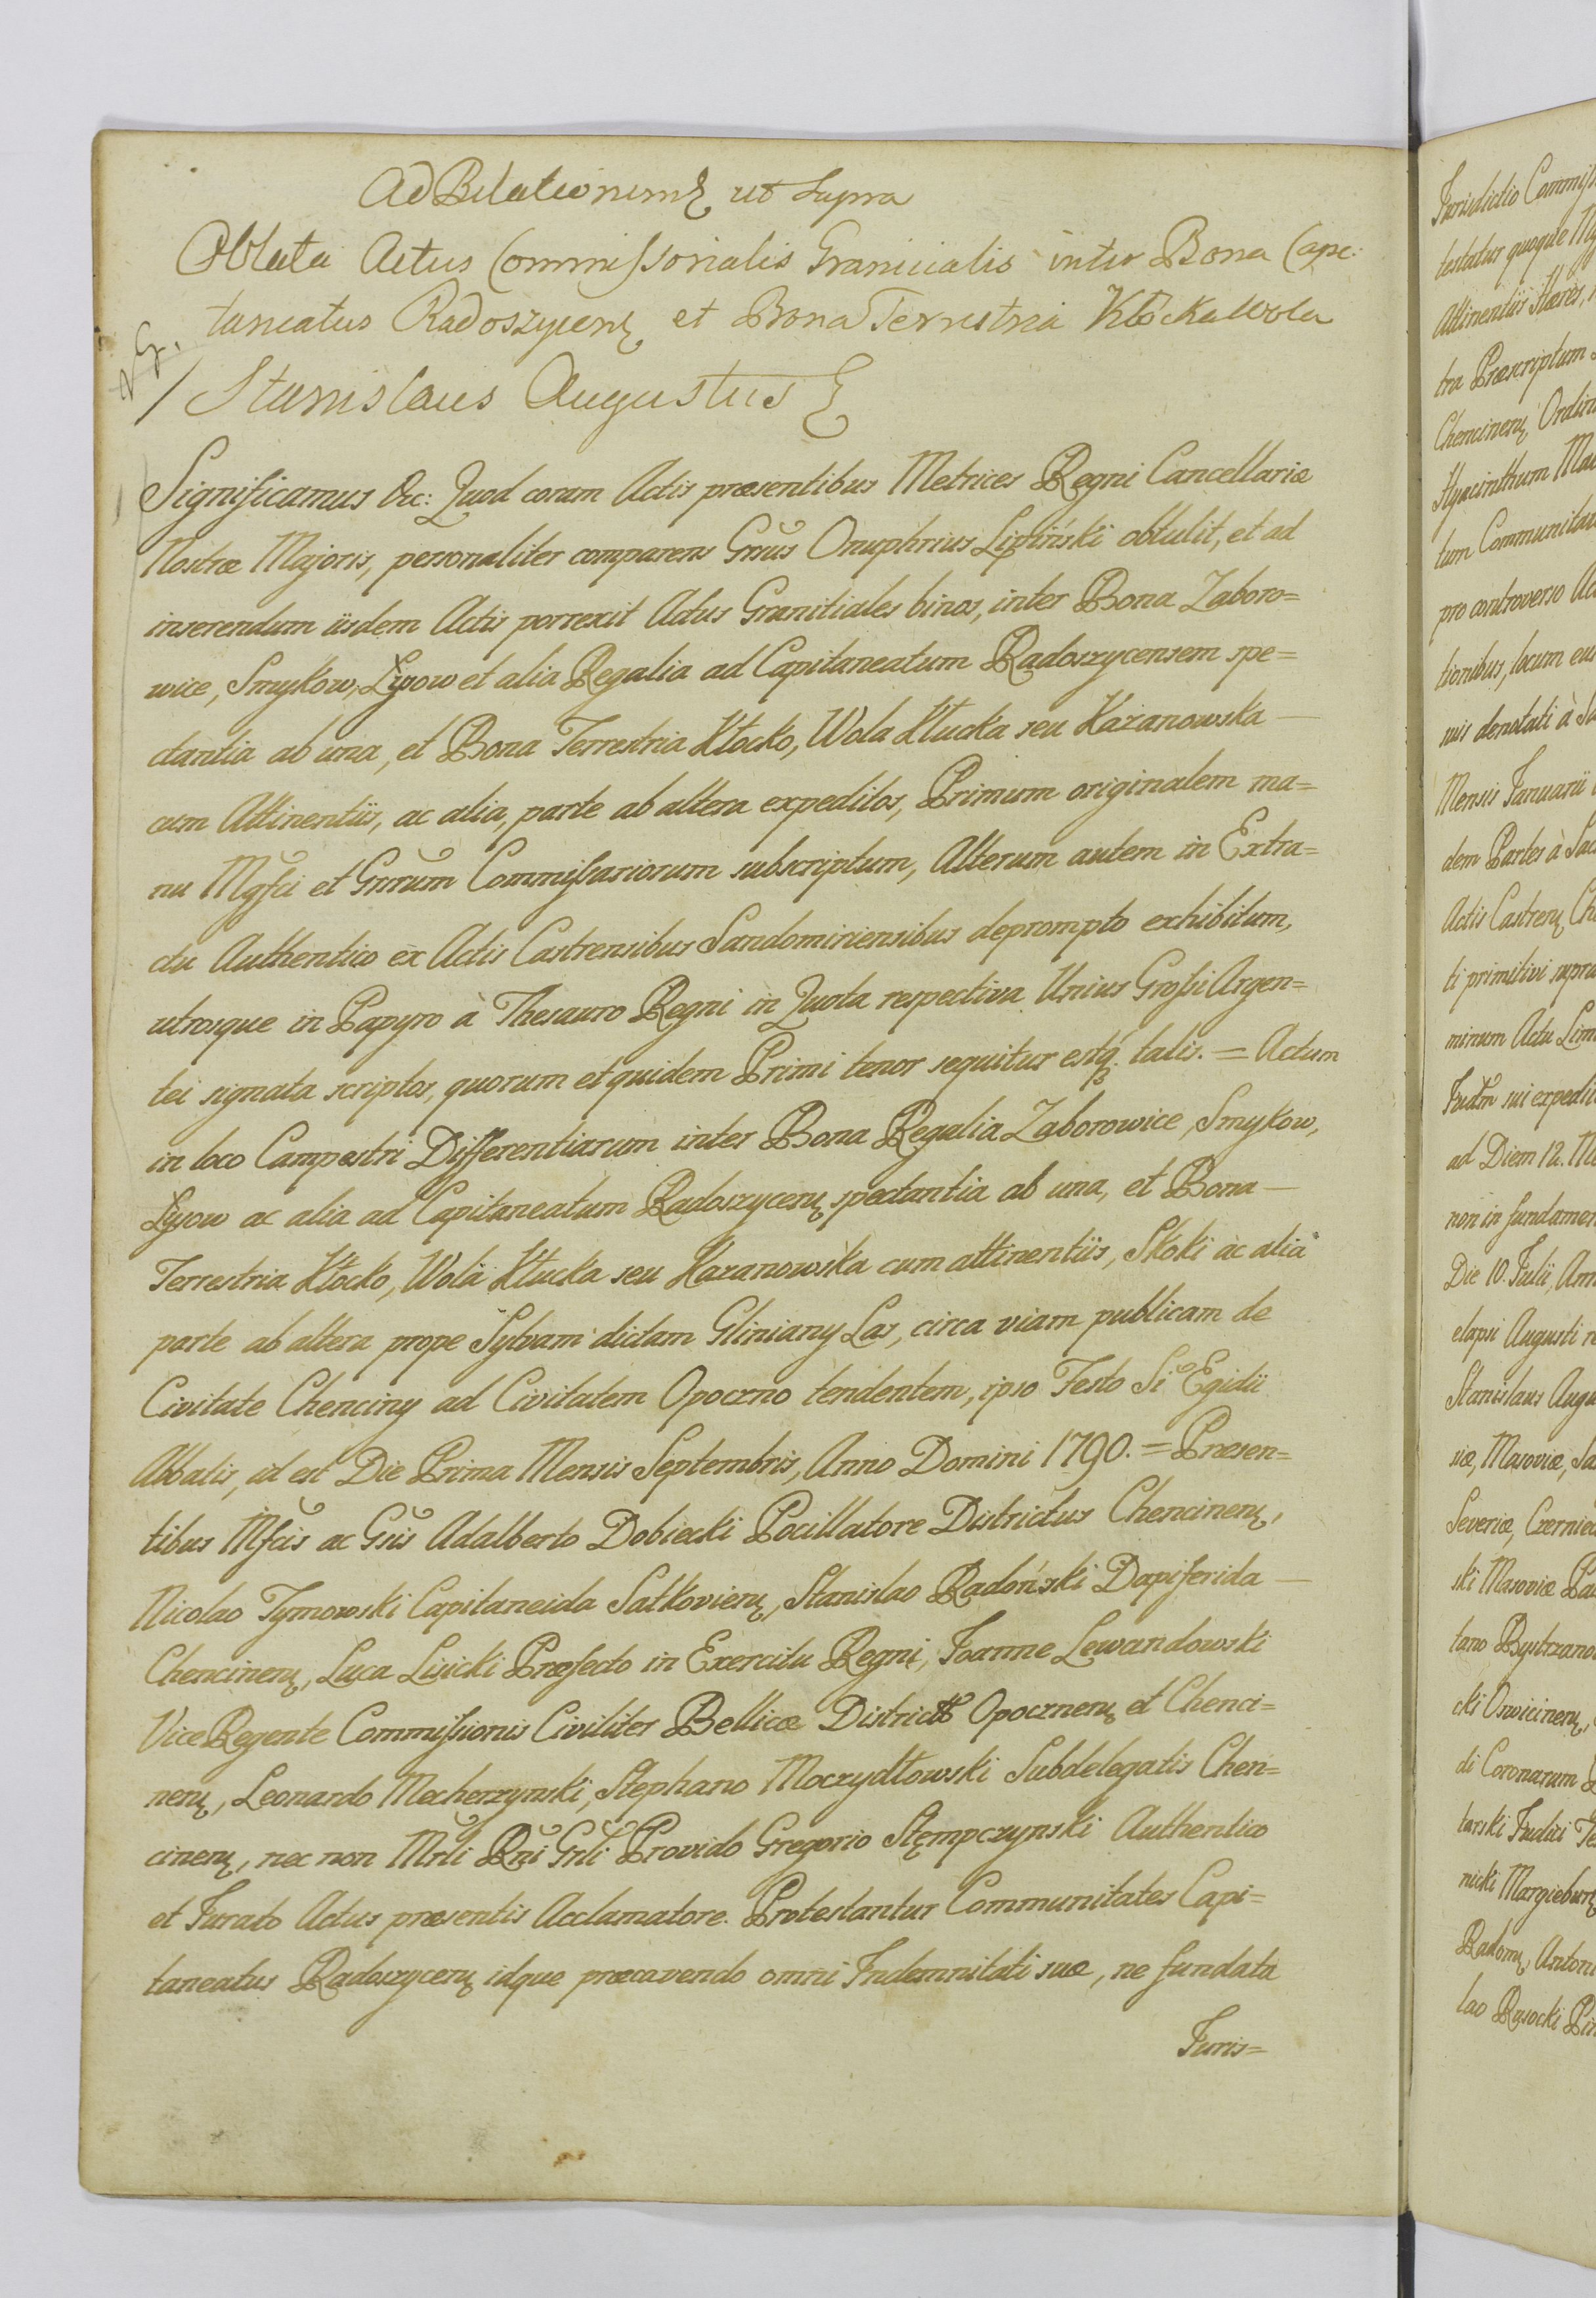 Ad Relationem ut supra
Oblata Actus Commissorialis Granicialis inter Bona Capi:
taneatus Radoszycen et Bona Terrestria Kłocka Wola
Stanislaus Augustus
Significamus &c: Quod coram Actis præsentibus Metrices Regni Cancellariæ
Nostræ Majoris, personaliter comparens Grsus Onuphrius Lipiński obtulit, et ad
inserendum iisdem Actis porrexit Actus Granitiales binos, inter Bona Zaboro=
wice, Smykow, Lysow et alia Regalia ad Capitaneatum Radoszycensem spe=
ctantia ab una, et Bona Terrestria Kłocko, Wola Kłucka seu Kazanowska —
cum Attinentiis, ac alia, parte ab altera expeditos, Primum originalem ma=
nu Mgfci et Grrum Commissariorum subscriptum, Alterum autem in Extra=
ctu Authentico ex Actis Castrensibus Sandomiriensibus deprompto exhibitum,
utrosque in Papyro à Thesauro Regni in Quota respectiva Unius Grossi Argen=
tei signata scriptos, quorum et quidem Primi tenor sequitur estq. talis. = Actum
in loco Campestri Differentiarum inter Bona Regalia Zaborowice, Smykow,
Lysow ac alia ad Capitaneatum Radoszycen spectantia ab una, et Bona —
Terrestria Kłocko, Wola Kłucka seu Kazanowska cum attinentiis, Skoki ac alia
parte ab altera prope Sylvam dictam Gliniany Las, circa viam publicam de
Civitate Chenciny ad Civitatem Opoczno tendentem, ipso Festo Si Egidii
Abbatis, id est Die Prima Mensis Septembris, Anno Domini 1790. = Præsen=
tibus Mfcis ac Gsis Adalberto Dobiecki Pocillatore Districtus Chencinen,
Nicolao Tymowski Capitaneida Satkovien, Stanislao Radoński Dapiferida —
Chencinen, Luca Lisicki Præfecto in Exercitu Regni, Joanne Lewandowski
Vice Regente Commissionis Civiliter Bellicæ Districtus Opocznen et Chenci=
nen, Leonardo Mecherzynski, Stephano Moczydłowski Subdelegatis Chen=
cinen, nec non Mrli Rni Grli Provido Gregorio Stempczynski Authentico
et Jurato Actus præsentis Acclamatore. Protestantur Communitates Capi=
taneatus Radoszycen idque præcavendo omni Indemnitati suæ, ne fundata
Juris=
Jurisdictio
testatur quoque
Attinentiis Hæres,
tra Præscriptum
Chencinen
Hyacinthum
tum
pro controverso
tionibus, locum
suis denotati à
Mensis Januarii
dem Partes à
Actis Castren
ti primitivi
minum Actu
sui
ad Diem 12.
non in
Die 10. Julii,
elapsi Augusti
Stanislaus
siæ, Masoviæ,
Severiæ,
ski Masoviæ
tano
cki Oswicimen,
di Coronarum
tarski Judici
nicki
Radom, 
lao Rysocki